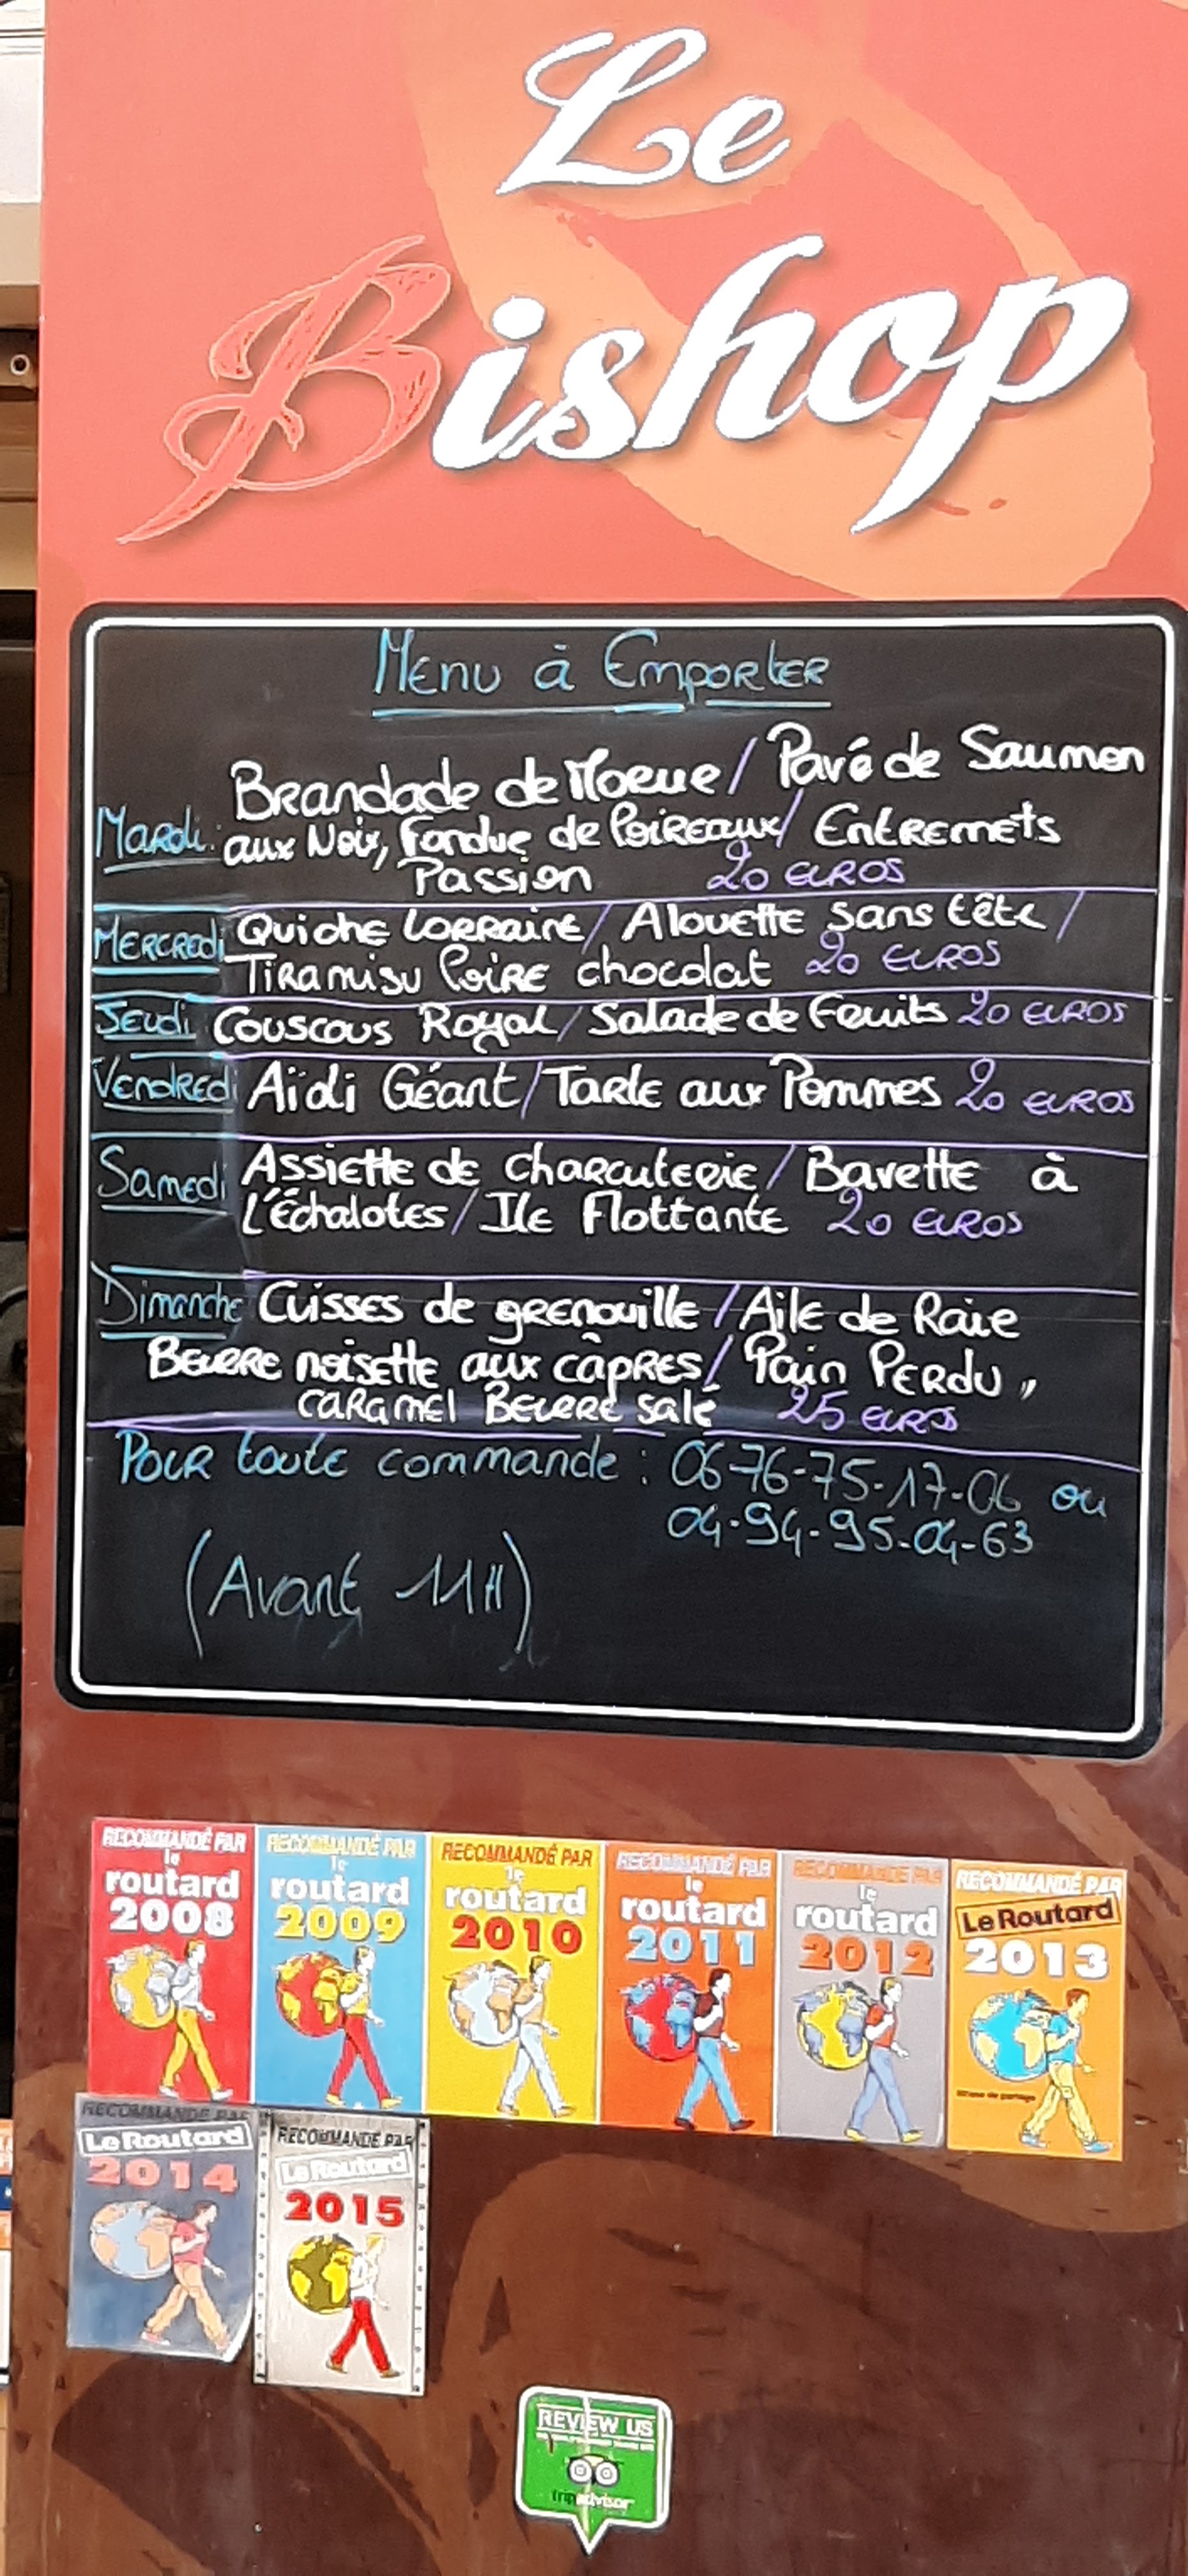 Le
Bishop
Menu à Emporter
Brandade de Morue / Pavé de Saumon
Mardi: aux Noix, Fondue de Poireaux / Entremets
Passion 20 EUROS
Mercredi Quiche Lorraine / Alouette sans tête /
Tiramisu Poire chocolat 20 EUROS
Jeudi Couscous Royal / Salade de Fruits 20 EUROS
Vendredi Aïdi Géant / Tarte aux Pommes 20 EUROS
Samedi Assiette de Charcuterie / Bavette à
l'Échalotes / Ile Flottante 20 EUROS
Dimanche Cuisses de grenouille / Aile de Raie
Beurre noisette aux câpres / Pain Perdu,
caramel Beurre salé 25 EUROS
Pour toute commande : 06-76-75-17-06 ou
04-94-95-04-63
(Avant 11H)
RECOMMANDÉ PAR le routard 2008
RECOMMANDÉ PAR le routard 2009
RECOMMANDÉ PAR le routard 2010
RECOMMANDÉ PAR le routard 2011
RECOMMANDÉ PAR le routard 2012
RECOMMANDÉ PAR Le Routard 2013
RECOMMANDÉ PAR Le Routard 2014
RECOMMANDÉ PAR Le Routard 2015
REVIEW US
tripadvisor